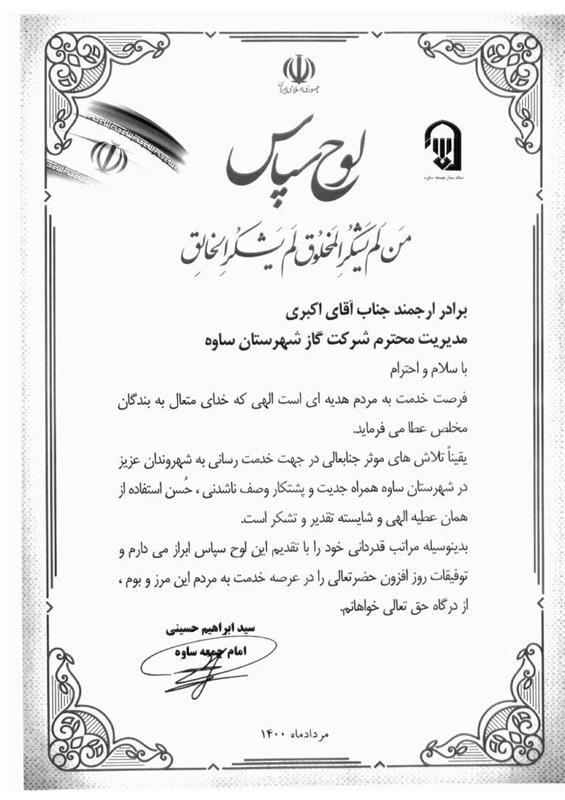 جمهوری اسلامی ایران
ستاد نماز جمعه ساوه
لوح سپاس
مَن لَم یَشکُرِ المَخلُوق لَم یَشکُرِ الخالِق
برادر ارجمند جناب آقای اکبری
مدیریت محترم شرکت گاز شهرستان ساوه
با سلام و احترام
فرصت خدمت به مردم هدیه ای است الهی که خدای متعال به بندگان
مخلص عطا می فرماید.
یقیناً تلاش های موثر جنابعالی در جهت خدمت رسانی به شهروندان عزیز
در شهرستان ساوه همراه جدیت و پشتکار وصف ناشدنی ، حُسن استفاده از
همان عطیه الهی و شایسته تقدیر و تشکر است.
بدینوسیله مراتب قدردانی خود را با تقدیم این لوح سپاس ابراز می دارم و
توفیقات روز افزون حضرتعالی را در عرصه خدمت به مردم این مرز و بوم ،
از درگاه حق تعالی خواهانم.
سید ابراهیم حسینی
امام جمعه ساوه
مردادماه ۱۴۰۰